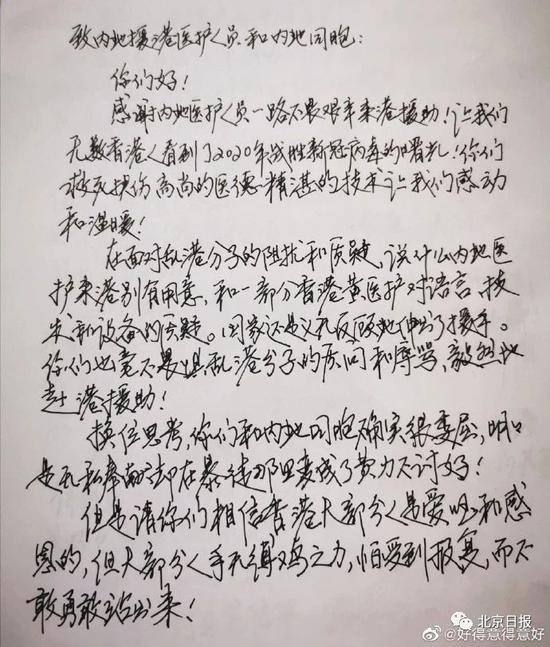 致内地援港医护人员和内地同胞：
你们好！
感谢内地医护人员一路不畏艰辛来港援助！让我们
无数香港人看到了2020年战胜新冠病毒的曙光！你们
救死扶伤高尚的医德精湛的技术让我们感动
和温暖！
在面对乱港分子的阻扰和质疑，说什么内地医
护来港别有用意，和一部分香港黄医护对语言、技
术和设备的质疑。国家还是义无反顾地伸出了援手。
你们也竟不畏惧乱港分子的质问和辱骂，毅然地
赴港援助！
换位思考，你们和内地同胞确实很委屈，明明
是无私奉献却在暴徒那里变成了费力不讨好！
但是请你们相信香港大部分人是爱国和感
恩的，但大部分人手无缚鸡之力，怕受到报复，而不
敢勇敢站出来！
北京日报
@好得意得意好